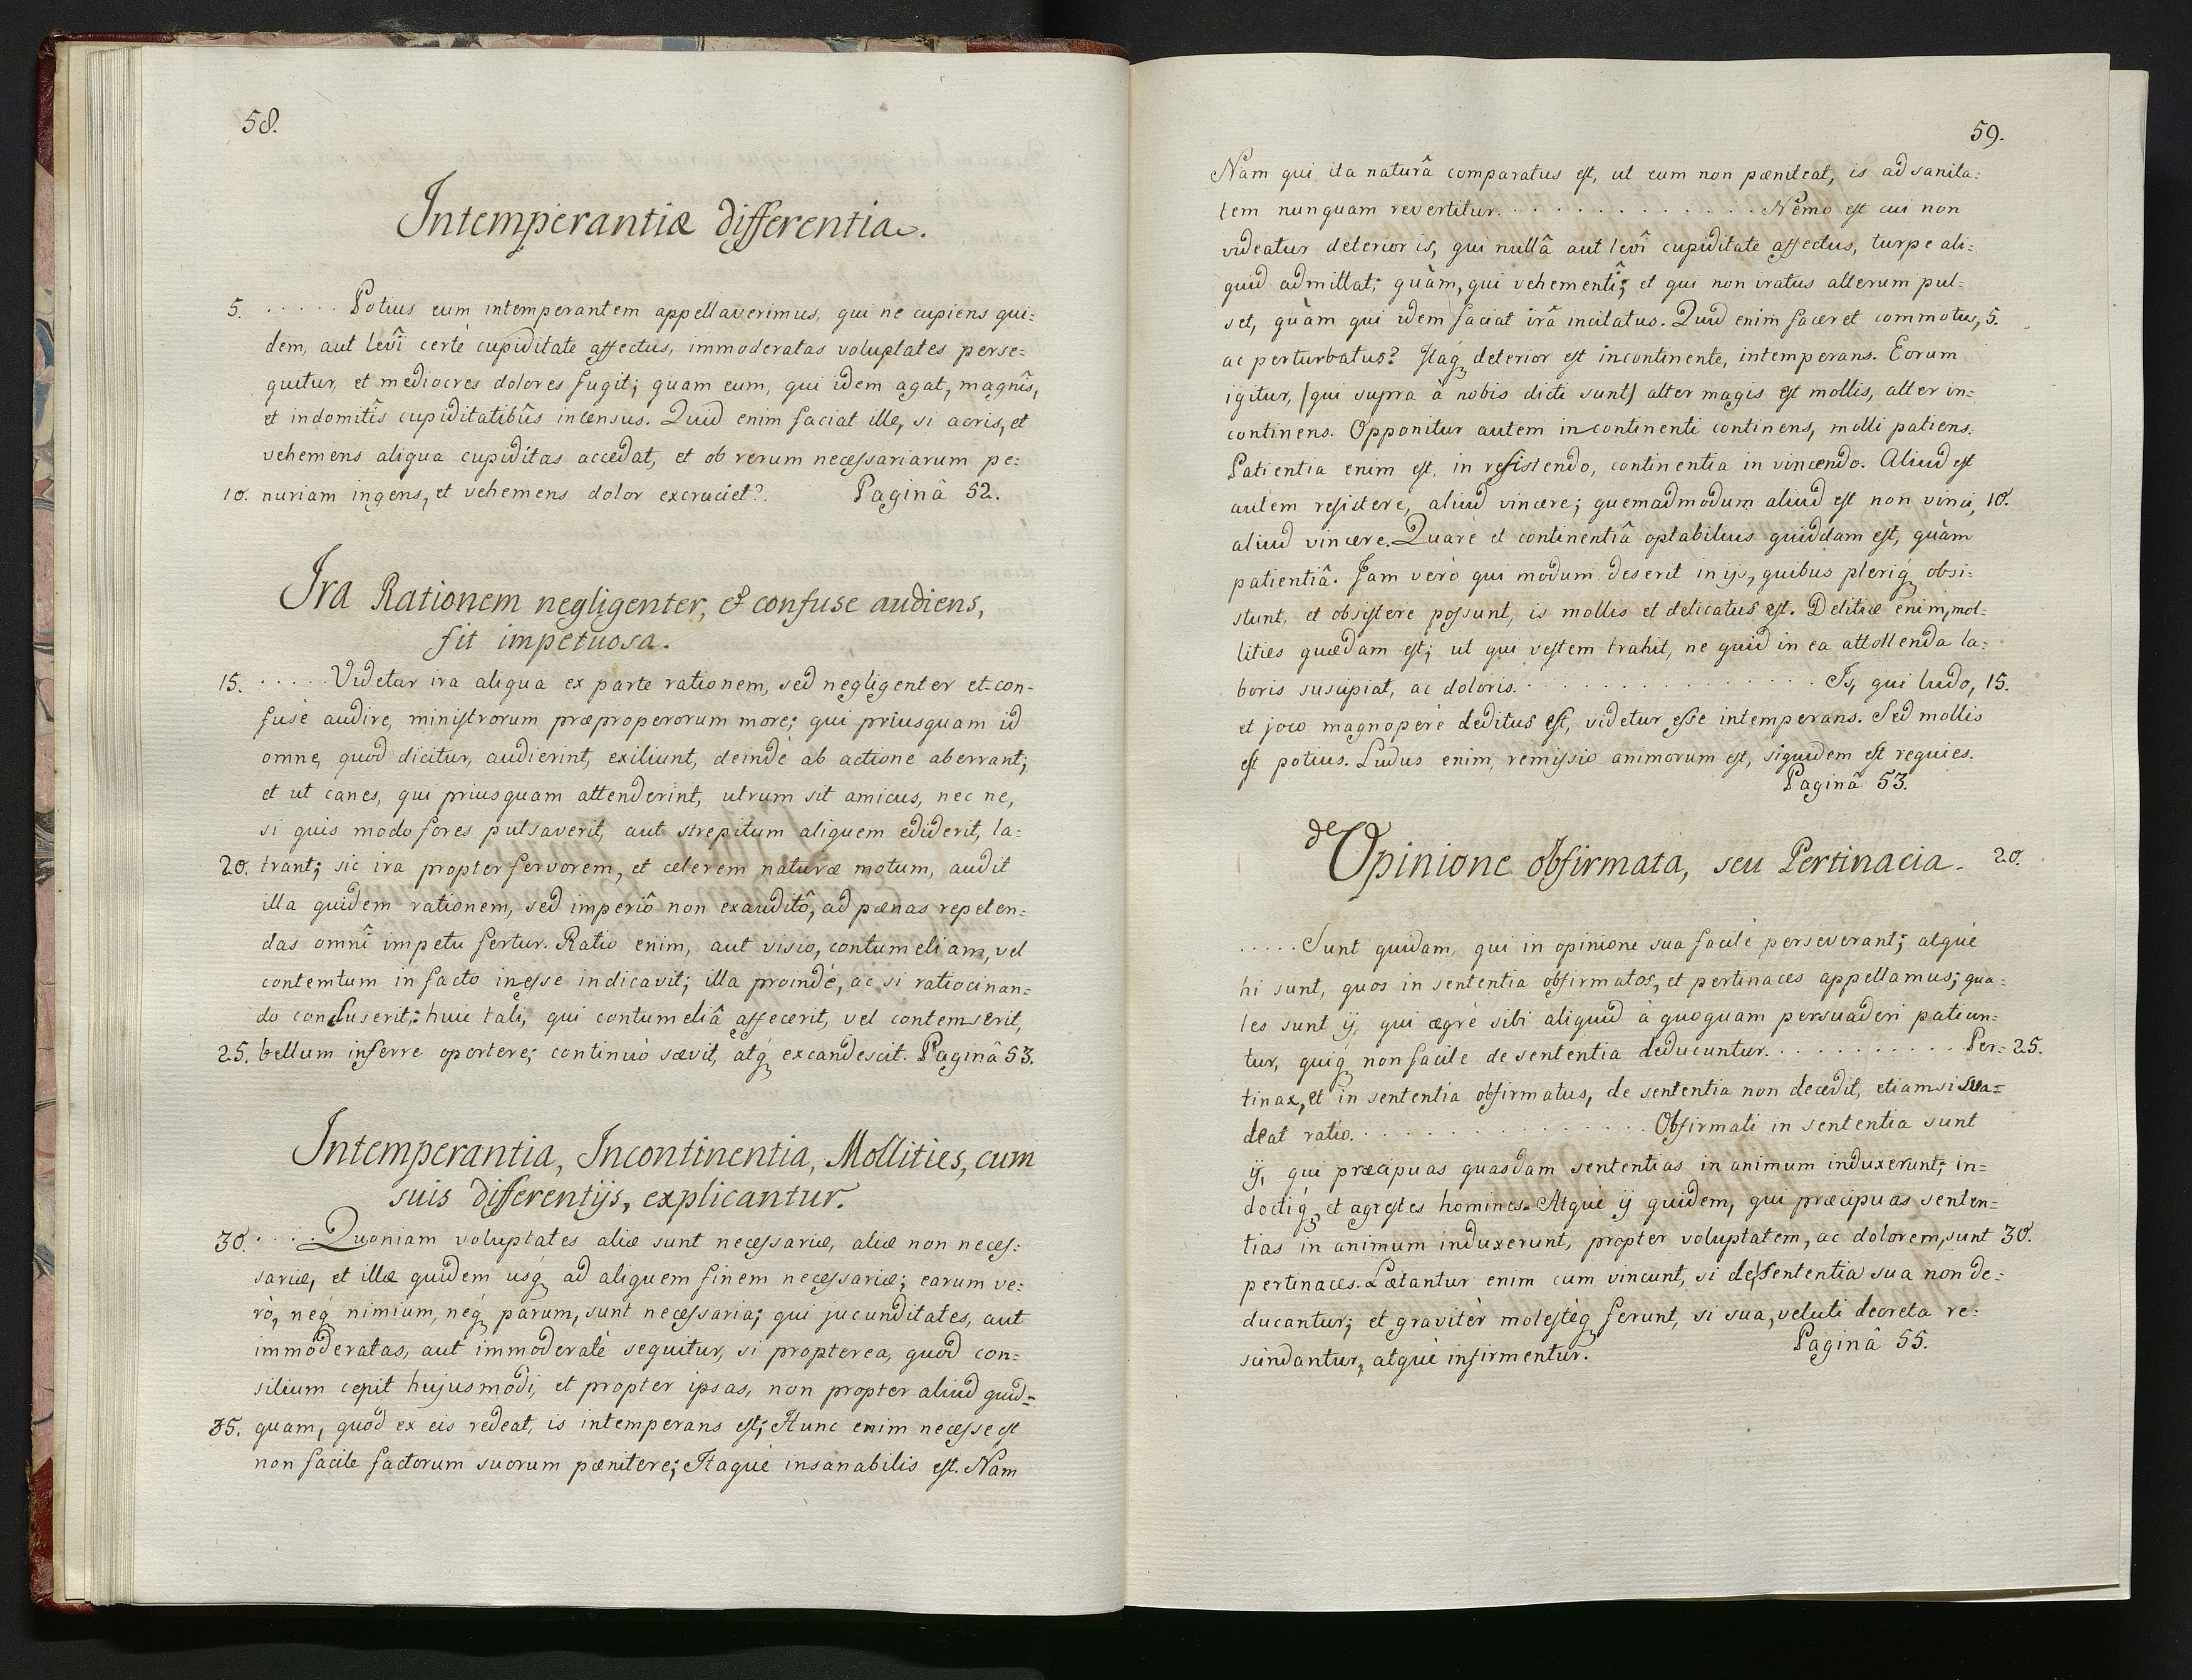 58.
Intemperantiæ differentia.
5. . . . . . Potius eum intemperantem appellaverimus, qui ne cupiens qui=
dem, aut levî certè cupiditate affectus, immoderatas voluptates perse=
quitur, et mediocres dolores fugit; quam eum, qui idem agat, magnîs,
et indomitîs cupiditatibûs incensus. Quid enim faciat ille, si acris, et
vehemens aliqua cupiditas accedat, et ob rerum necessariarum pe=
10. nuriam ingens, et vehemens dolor excruciet? Paginâ 52.
Ira Rationem negligenter, et confuse audiens,
fit impetuosa.
15. . . . . . Videtur ira aliqua ex parte rationem, sed negligenter et con=
fusè audire, ministrorum præproperorum more; qui priusquam id
omne, quod dicitur, audierint, exiliunt, deindè ab actione aberrant;
et ut canes, qui priusquam attenderint, utrum sit amicus, nec ne,
si quis modo fores pulsaverit, aut strepitum aliquem ediderit, la=
20. trant; sic ira propter fervorem, et celerem naturæ motum, audit
illa quidem rationem, sed imperiô non exauditô, ad pænas repeten=
das omnî impetu fertur. Ratio enim, aut visio, contumeliam, vel
contemtum in facto inesse indicavit; illa proindè, ac si ratiocinan=
do concluserit: huic tali, qui contumeliâ affecerit, vel contemserit,
25. bellum inferre oportere; continuò sævit, atq excandescit. Paginâ 53.
Intemperantia, Incontinentia, Mollities, cum
suis differentijs, explicantur.
30. . . . . Quoniam voluptates aliæ sunt necessariæ, aliæ non neces=
sariæ, et illæ quidem usq ad aliquem finem necessariæ; earum ve=
rò, neq nimium, neq parum, sunt necessaria; qui jucunditates, aut
immoderatas, aut immoderatè sequitur, si propterea, quod con=
silium cepit hujusmodi, et propter ipsas, non propter aliud quid=
35. quam, quod ex eis redeat, is intemperans est; Hunc enim necesse est
non facile factorum suorum pænitere; Itaquè insanabilis est. Nam
59.
Nam qui ita naturâ comparatus est, ut eum non pæniteat, is ad sanita=
tem nunquam revertitur. . . . . . . . . . . . . . Nemo est cui non
videatur deterior is, qui nullâ aut levî cupiditate affectus, turpe ali=
quid admittat; quàm, qui vehementî; et qui non iratus alterum pul=
set, quàm qui idem faciat irâ incitatus. Quid enim faceret commotus, 5.
ac perturbatus? Itaq deterior est incontinente, intemperans. Eorum
igitur, /qui supra à nobis dicti sunt/ alter magis est mollis, alter in=
continens. Opponitur autem incontinenti continens, molli patiens.
Patientia enim est, in resistendo, continentia in vincendo. Aliud est
autem resistere, aliud vincere; quemadmodum aliud est non vinci, 10.
aliud vincere. Quarè et continentiâ optabilius quiddam est, quàm
patientiâ. Jam verò qui modum deserit in ijs, quibus pleriq obsi=
stunt, et obsistere possunt, is mollis et delicatus est. Delitiæ enim, mol=
lities quædam est; ut qui vestem trahit, ne quid in ea attollenda la=
boris suscipiat, ac doloris. . . . . . . . . . . . . . . . Is, qui ludo, 15.
et joco magnoperè deditus est, videtur esse intemperans. Sed mollis
est potius. Ludus enim, remissio animorum est, siquidem est requies.
Paginâ 53.
de Opinione obfirmata, seu Pertinacia. 20.
. . . . . Sunt quidam, qui in opinione sua facilè perseverant; atquè
hi sunt, quos in sententia obfirmatos, et pertinaces appellamus; qua=
les sunt ij, qui ægrè sibi aliquid à quoquam persuaderi patiun=
tur, quiq non facile de sententia deducuntur. . . . . . . . . . . Per= 25.
tinax, et in sententia obfirmatus, de sententia non decedit, etiamsi sua=
deat ratio. . . . . . . . . . . . . . . . Obfirmati in sententia sunt
ij, qui præcipuas quasdam sententias in animum induxerunt; in=
doctiq, et agrestes homines. Atquè ij quidem, qui præcipuas senten=
tias in animum induxerunt, propter voluptatem, ac dolorem, sunt 30.
pertinaces. Lætantur enim cum vincunt, si de sententia sua non de=
ducantur; et gravitèr molestèq ferunt, si sua, veluti decreta re=
scindantur, atquè infirmentur. Paginâ 55.